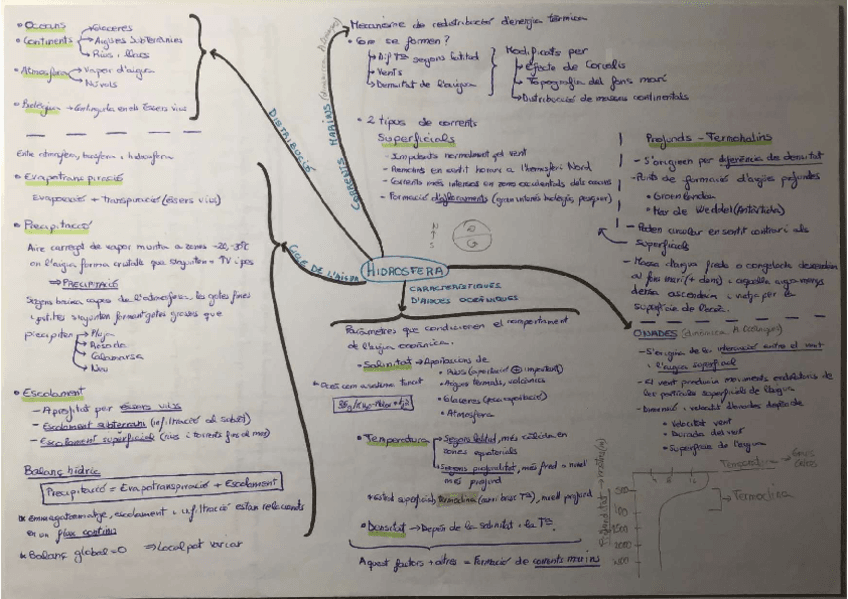 • Oceans
• Continents → Glaceres
→ Aigües subterrànies
→ Rius i llacs
• Atmosfera → Vapor d'aigua
→ Núvols
• Biològica → Continguda en els éssers vius
Entre atmosfera, biosfera i hidrosfera
• Evapotranspiració
Evaporació + Transpiració (éssers vius)
• Precipitació
Aire carregat de vapor munta a zones
on l'aigua forma cristalls que
⇒ Precipitació
Segons baixa capes de l'atmosfera les gotes fines
i petites s'ajunten formant gotes grosses que
precipiten → Pluja
→ Rosada
→ Calamarsa
→ Neu
• Escolament
- Aprofitat per éssers vius
- Escolament subterrani (infiltració al subsòl)
- Escolament superficial (rius i torrents fins al mar)
Balanç hídric
Precipitació = Evapotranspiració + Escolament
* emmagatzematge, escolament i infiltració estan relacionats
en un flux continu
* Balanç global = 0 ⇒ Local pot variar
DISTRIBUCIÓ
CORRENTS MARINS
CICLE DE L'AIGUA
HIDROSFERA
CARACTERÍSTIQUES
D'AIGÜES OCEÀNIQUES
Mecanisme de redistribució d'energia tèrmica
• Com se formen?
→ Dif Tª segons latitud
→ Vents
→ Densitat de l'aigua
Modificats per
→ Efecte de Coriolis
→ Topografia del fons marí
→ Distribució de masses continentals
• 2 tipus de corrents
Superficials
- Impulsats normalment pel vent
- Remolins en sentit horari a l'hemisferi Nord
- Corrents més intenses en zones occidentals dels oceans
- Formació d'afloraments (gran interès biològic, pesquer)
N
S
Profunds - Termohalins
- S'originen per diferència de densitat
- Punts de formació d'aigües profundes
• Groenlàndia
• Mar de Weddel (Antàrtida)
- Poden circular en sentit contrari als
superficials
- Massa d'aigua freda o congelada descendeix
al fons marí (+ dens) i aquella aigua menys
densa ascendeix i viatja per la
superfície de l'oceà.
Paràmetres que condicionen el comportament
de l'aigua oceànica.
• Salinitat → Aportacions de
• Rius (aportació ⊕ important)
• Aigües termals, volcàniques
• Glaceres
• Atmosfera
• Temperatura → Segons latitud, més càlides en
zones equatorials
→ Segons profunditat, més fred a nivell
més profund
termoclina
• Densitat → Depèn de la salinitat i la Tª.
Aquest factors + altres = Formació de corrents marins
ONADES
- S'origina de la interacció entre el vent
i l'aigua superficial
- El vent produeix moviments
les partícules superficials de l'aigua
- Dimensió i velocitat d'onades depèn de
• Velocitat vent
• Durada del vent
• Superfície de l'aigua
Temperatura →
Profunditat → metres (m)
500
1500
2000
Termoclina